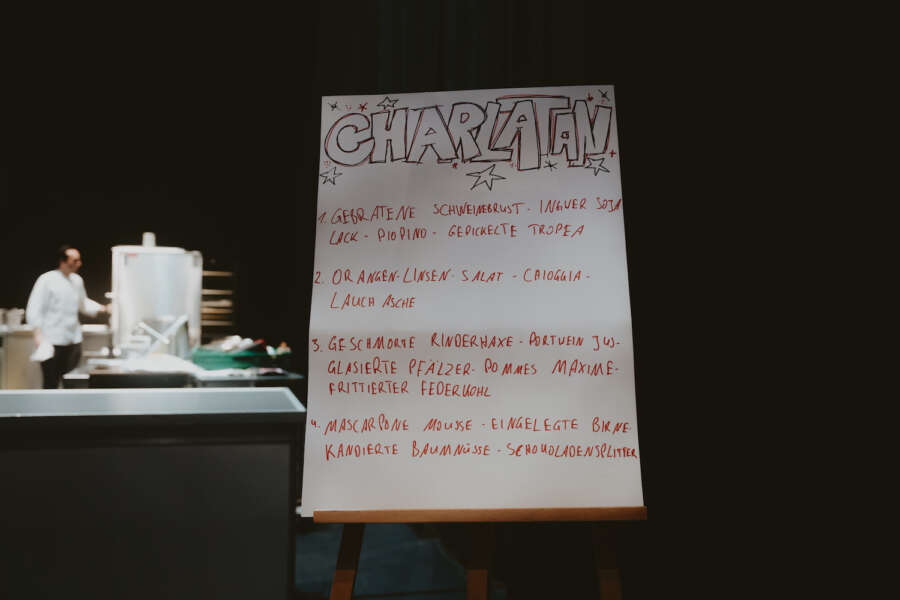 CHARLATAN
1. GEBRATENE SCHWEINEBRUST - INGWER SOJA
LACK - PIOPINO - GEPICKELTE TROPEA
2. ORANGEN-LINSEN-SALAT - CHIOGGIA -
LAUCH ASCHE
3. GESCHMORTE RINDERHAXE - PORTWEIN JUS -
GLASIERTE PFÄLZER - POMMES MAXIME -
FRITTIERTER FEDERKOHL
4. MASCARPONE MOUSSE - EINGELEGTE BIRNE -
KANDIERTE BAUMNÜSSE - SCHOKOLADENSPLITTER